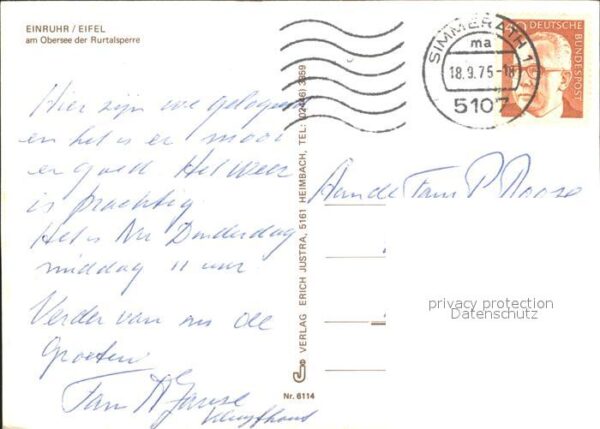 EINRUHR / EIFEL
am Obersee der Rurtalsperre
Hier zijn we gelogeerd
en het is er mooi
en goed. Het weer
is prachtig
Het is nu Donderdag
middag 11 uur.
Verder van ons de
groeten
Fam
VERLAG ERICH JUSTRA, 5161 HEIMBACH, TEL: (02446) 3369
Nr. 6114
SIMMERATH 1
ma
18.9.75-18
5107
DEUTSCHE
BUNDESPOST
Aan de Fam P Roose
privacy protection
Datenschutz